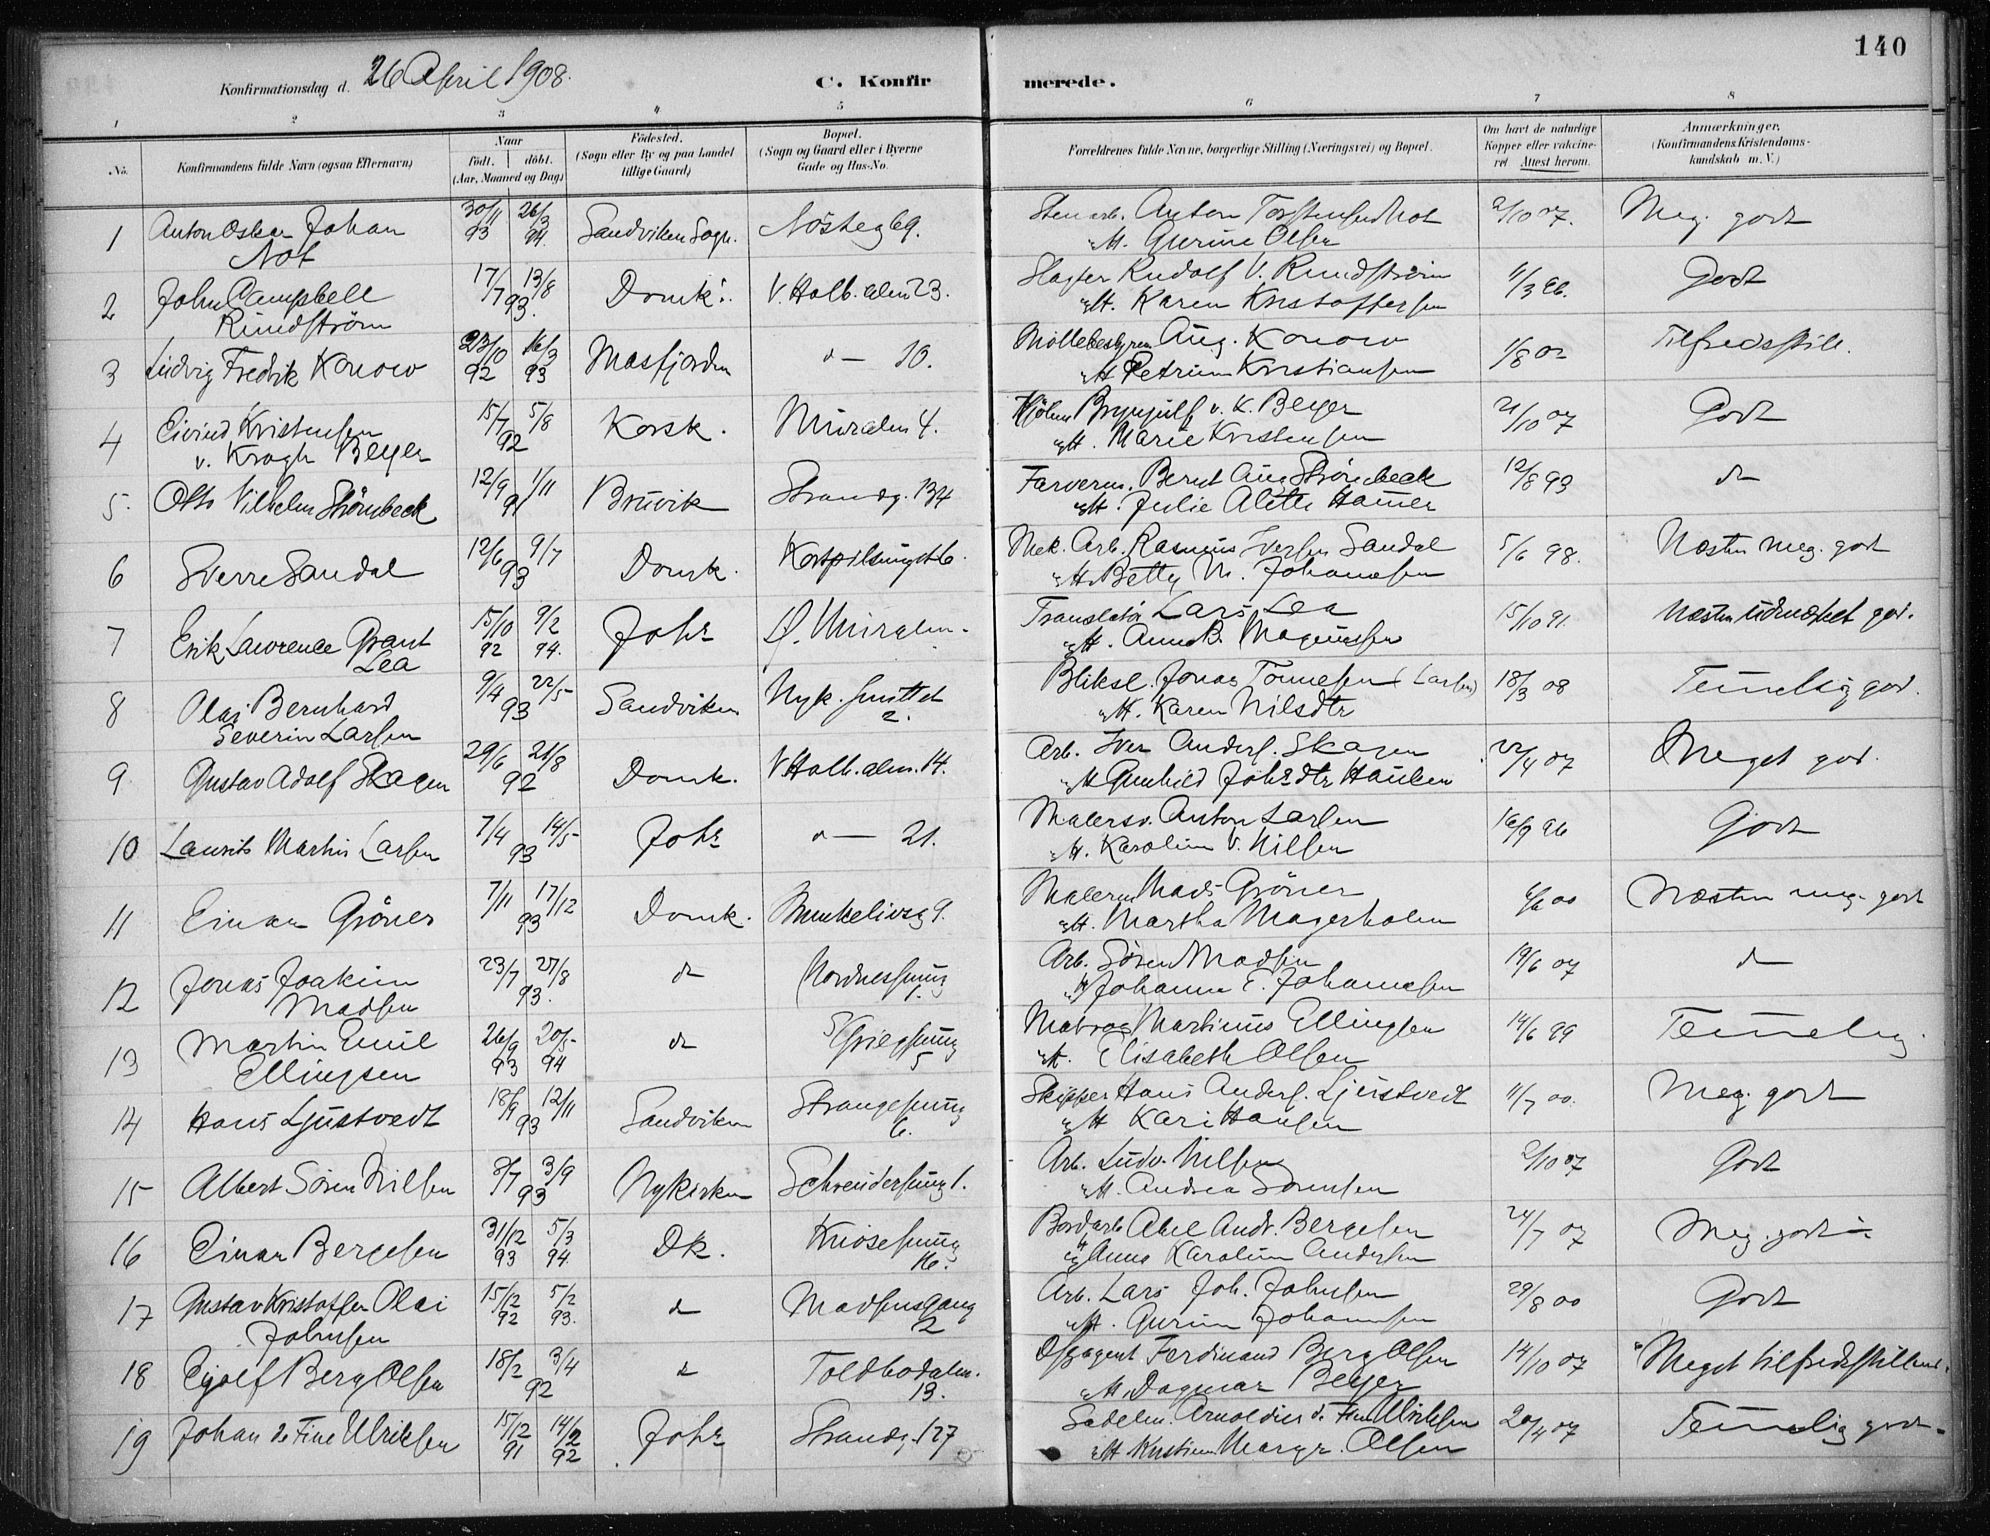 140
Konfirmationsdag d. 26 April 1908.
C. Konfirmerede.
1 2 3 4 5 6 7 8
No.
Konfirmandens fulde Navn (ogsaa Efternavn)
Naar
födt. döbt.
(Aar, Maaned og Dag)
Födested.
(Sogn eller By og paa Landet tillige Gaard)
Bopæl.
(Sogn og Gaard eller i Byerne Gade og Hus-No.
Forældrenes fulde Navne, borgerlige Stilling (Næringsvei) og Bopæl.
Om havt de naturlige Kopper eller vakcineret. Attest herom.
Anmærkninger.
(Konfirmandens Kristendomskundskab m. V.)
1 Anton Oskar Johan 30/11 93 26/3 94. Sandviken Sogn. Nösteg 69. Stenarb. Anton Torstensen Not 2/10 07. Meg. godt
Not H. Gurine Olsen
2 John Campbell 17/7 13/8 93. Domk. V. Holb. alm 23. Slagter Rudolf V. Rundström 11/3 96. Godt
Rundström H. Karen Kristoffersen
3 Ludvig Fredrik Konow 23/10 92 16/3 93 Masfjorden do — 10. Möllebestyrer Aug. Konow 1/8 02 Tilfredsstill.
H. Petrine Kristiansen
4 Eivind Kristensen 15/7 5/8 92 Korsk. Muralm 4. Brynjulf v. K. Beyer 21/10 07 Godt
v. Krogh Beyer H. Marie Kristensen
5. Otto Vilhelm Strömbeck 12/9 1/11 91 Bruvik Strandg. 134 Farverm. Bernt Aug Strömbeck 12/8 93 do
H. Julie Alette Hamer
6 Sverre Sandal 12/6 9/7 93 Domk. Mek. Arb. Rasmus Iversen Sandal 5/6 98. Næsten meg. godt
H. Betty M. Johannesen
7 Erik Lawrence Grant 15/10 92 9/2 94. Johs Ö. Muralm. Translatör Lars Lea 15/10 91. Næsten udmærket god.
Lea H. Anna B. Magnussen
8 Olai Bernhard 9/4 22/5 93 Sandviken Nyk. smuttet Bliksl. Jonas Tönnesen (Larsen) 18/3 08 Temmelig god.
Severin Larsen 2. H. Karen Nilsdtr
9 Gustav Adolf Skagen 29/6 21/8 92 Domk. V Holb. alm. 14. Arb. Iver Anders. Skagen 22/4 07 Meget god.
H Gunhild Johsdtr Hauken
10 Laurits Martin Larsen 7/4 14/5 93 Johs do — 21. Malersv. Anton Larsen 16/9 96 Godt
H. Karoline V. Nilsen
11 Einar Gröner 7/11 17/12 93 Domk. Munkelivsg 9. Malerm Mads Gröner 6/6 00 Næsten meg. godt
H. Martha Magerholm
12 Jonas Joakim 23/7 27/8 93. do Nordnessmug Arb. Sören Madsen 19/6 07 do
Madsen 1. Johanne E. Johannesen
13 Martin Emil 26/9 93 20/5 94 do Griegsmug Matros Martinus Ellingsen 14/6 99 Temmelig
Ellingsen 5 H. Elisabeth Olsen
14 Hans Ljustvedt 18/9 12/11 93 Sandviken Strangesmug Skipper Hans Anders. Ljustvedt 11/7 00. Meg. godt
6. H Kari Hansen
15 Albert Sören Nilsen 2/7 3/9 93 Nykirken Schreudersmug 1. Arb. Ludv. Nilsen 2/10 07 Godt
H. Andrea Sörensen
16 Einar Bergesen 31/12 93 5/3 94. Dk. Knösesmug Bordarb Abel Andr. Bergesen 24/7 07 Meg. godt
16. Anna Karoline Andersen
17 Gustav Kristoffer Olai 15/12 92 5/2 93. do Madsensgang Arb. Lars Joh. Johnsen 29/8 00 Godt
Johnsen 2 H. Gurine Johannesen
18 Eyolf Berg Olsen 18/2 3/4 92 do Toldbodalm. Ferdinand Berg Olsen 14/10 07 Meget tilfredsstillend.
13. H. Dagmar Beyer
19 Johan de Fine Ulriksen 15/12 91 14/2 92 Johs Strandg. 127 Sadelm. Arnoldus d. Fine Ulriksen 20/4 07 Temmelig godt.
H Kristine Margr. Olsen